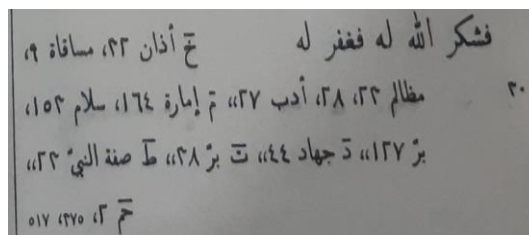 فشكر الله له فغفر له خَ أذان ٣٢، مساقاة ٩،
٢٠ مظالم ٢٣، ٢٨، أدب ٢٧،، مَ إمارة ١٦٤، سلام ١٥٣،
برّ ١٢٧،، دَ جهاد ٤٤،، تَ برّ ٣٨،، طَ صفة النبىّ ٢٣،،
حَم ٢، ٣٧٥، ٥١٧